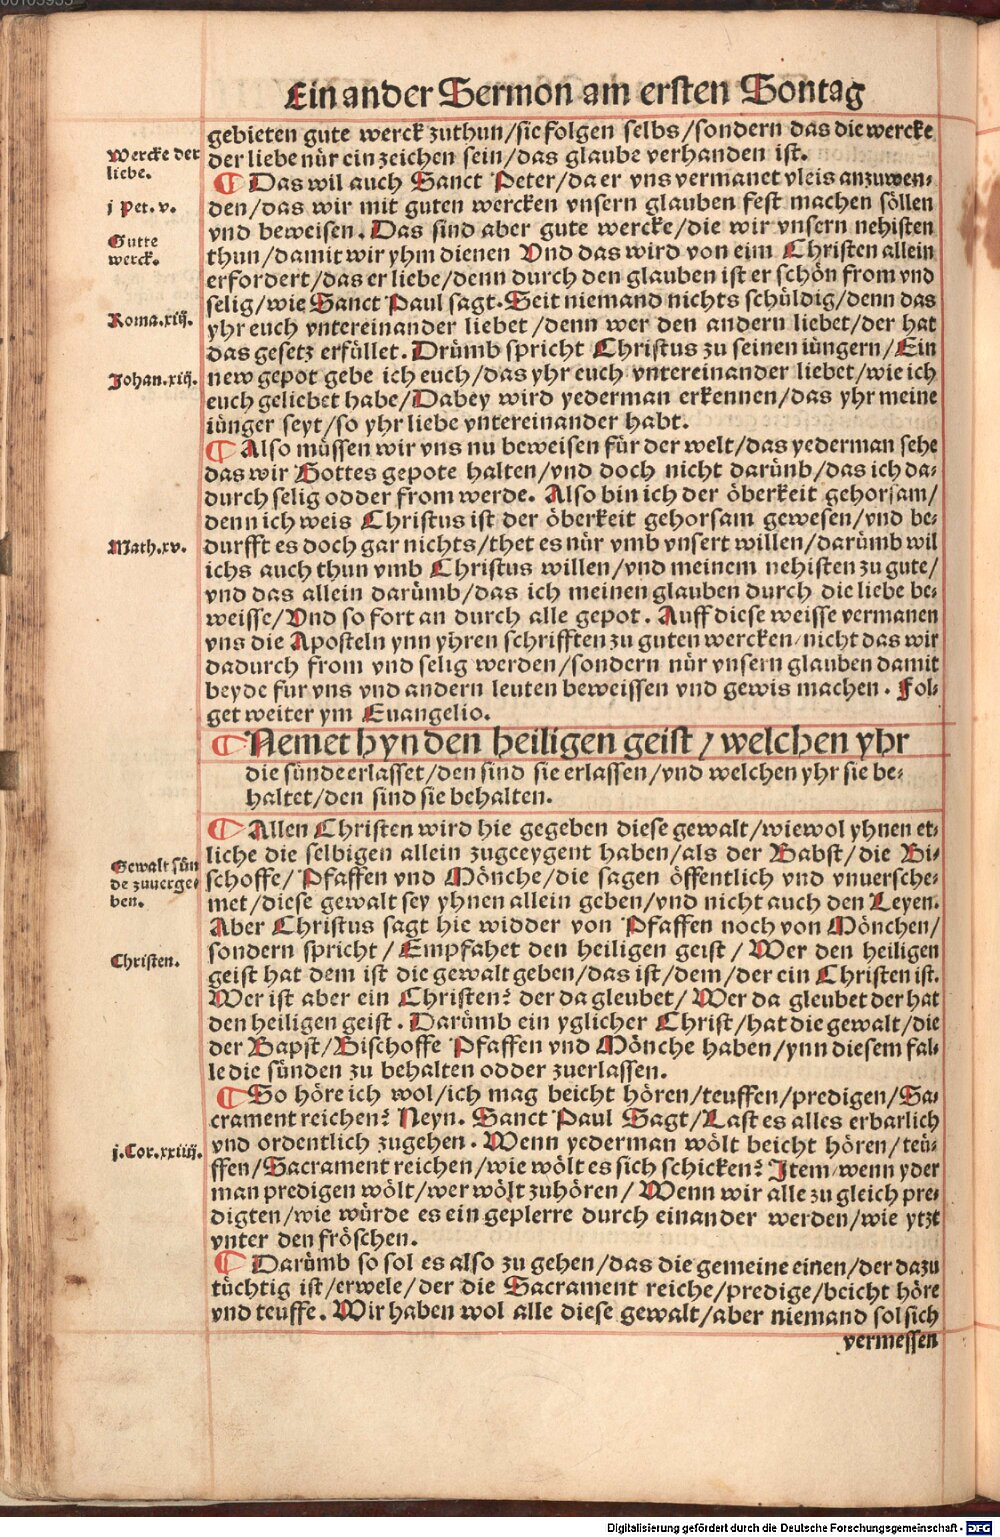 Ein ander Sermon am ersten Sontag
gebieten gute werck zuthun/sie folgen selbs/sondern das die wercke
der liebe nür ein zeichen sein/das glaube verhanden ist.
Wercke der
liebe.
¶ Das wil auch Sanct Peter/da er vns vermanet vleis anzuwen⸗
den/das wir mit guten wercken vnsern glauben fest machen söllen
j Pet. v.
vnd beweisen. Das sind aber gute wercke/die wir vnsern nehisten
thun/damit wir yhm dienen Vnd das wird von eim Christen allein
Gutte
werck.
erfordert/das er liebe/denn durch den glauben ist er schön from vnd
selig/wie Sanct Paul sagt. Seit niemand nichts schüldig/denn das
yhr euch vntereinander liebet/denn wer den andern liebet/der hat
Roma.xiij.
das gesetz erfüllet. Drümb spricht Christus zu seinen iüngern/Ein
new gepot gebe ich euch/das yhr euch vntereinander liebet/wie ich
Johan.xiij.
euch geliebet habe/Dabey wird yederman erkennen/das yhr meine
iünger seyt/so yhr liebe vntereinander habt.
¶ Also müssen wir vns nu beweisen für der welt/das yederman sehe
das wir Gottes gepote halten/vnd doch nicht darünb/das ich da⸗
durch selig odder from werde. Also bin ich der öberkeit gehorsam/
denn ich weis Christus ist der öberkeit gehorsam gewesen/vnd be⸗
durfft es doch gar nichts/thet es nür vmb vnsert willen/darümb wil
Math.xv.
ichs auch thun vmb Christus willen/vnd meinem nehisten zu gute/
vnd das allein darümb/das ich meinen glauben durch die liebe be⸗
weisse/Vnd so fort an durch alle gepot. Auff diese weisse vermanen
vns die Aposteln ynn yhren schrifften zu guten wercken/nicht das wir
dadurch from vnd selig werden/sondern nür vnsern glauben damit
beyde fur vns vnd andern leuten beweissen vnd gewis machen. Fol⸗
get weiter ym Euangelio.
¶ Nemet hyn den heiligen geist/welchen yhr
die sünde erlasset/den sind sie erlassen/vnd welchen yhr sie be⸗
haltet/den sind sie behalten.
¶ Allen Christen wird hie gegeben diese gewalt/wiewol yhnen et⸗
liche die selbigen allein zugeeygent haben/als der Babst/die Bi⸗
schoffe/Pfaffen vnd Mönche/die sagen öffentlich vnd vnuersche⸗
Gewalt sün
de zuuerge⸗
ben.
met/diese gewalt sey yhnen allein geben/vnd nicht auch den Leyen.
Aber Christus sagt hie widder von Pfaffen noch von Mönchen/
sondern spricht/Empfahet den heiligen geist/Wer den heiligen
Christen.
geist hat dem ist die gewalt geben/das ist/dem/der ein Christen ist.
Wer ist aber ein Christen? der da gleubet/Wer da gleubet der hat
den heiligen geist. Darümb ein yglicher Christ/hat die gewalt/die
der Bapst/Bischoffe Pfaffen vnd Mönche haben/ynn diesem fal⸗
le die sünden zu behalten odder zuerlassen.
¶ So höre ich wol/ich mag beicht hören/teuffen/predigen/Sa⸗
crament reichen? Neyn. Sanct Paul Sagt/Last es alles erbarlich
vnd ordentlich zugehen. Wenn yederman wölt beicht hören/teü⸗
j.Cor.xxiiij.
ffen/Sacrament reichen/wie wölt es sich schicken? Item wenn yder
man predigen wölt/wer wölt zuhören/Wenn wir alle zu gleich pre⸗
digten/wie würde es ein geplerre durch einander werden/wie ytzt
vnter den fröschen.
¶ Darümb so sol es also zu gehen/das die gemeine einen/der dazu
tüchtig ist/erwele/der die Sacrament reiche/predige/beicht höre
vnd teuffe. Wir haben wol alle diese gewalt/aber niemand sol sich
vermessen
Digitalisierung gefördert durch die Deutsche Forschungsgemeinschaft - DFG